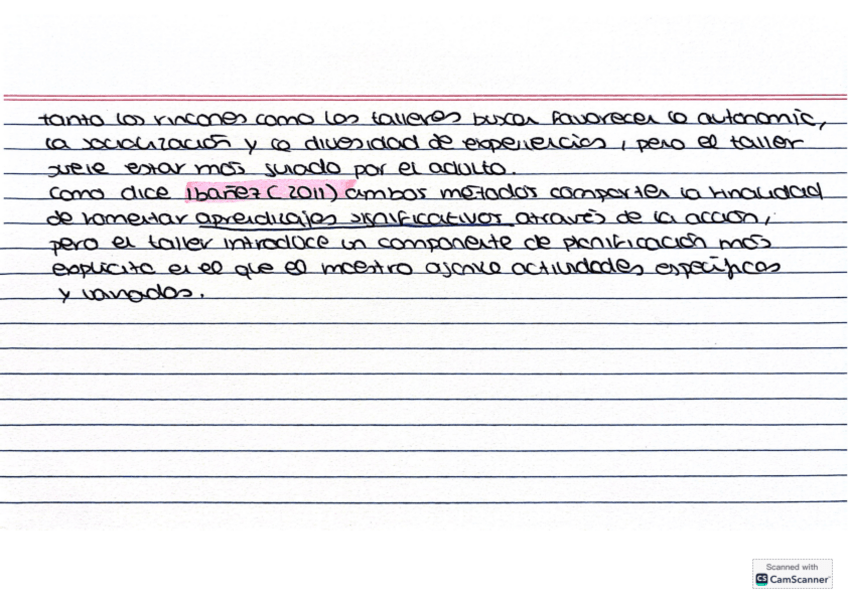 tanto los rincones como los talleres buscan favorecer la autonomia,
la socialización y la diversidad de experiencias, pero el taller
suele estar más guiado por el adulto.
Como dice Ibañez (2011) ambos métodos comparten la finalidad
de fomentar aprendizajes significativos através de la acción,
pero el taller introduce un componente de planificación más
explícita en el que el maestro organiza actividades específicas
y variadas.
Scanned with
CS CamScanner